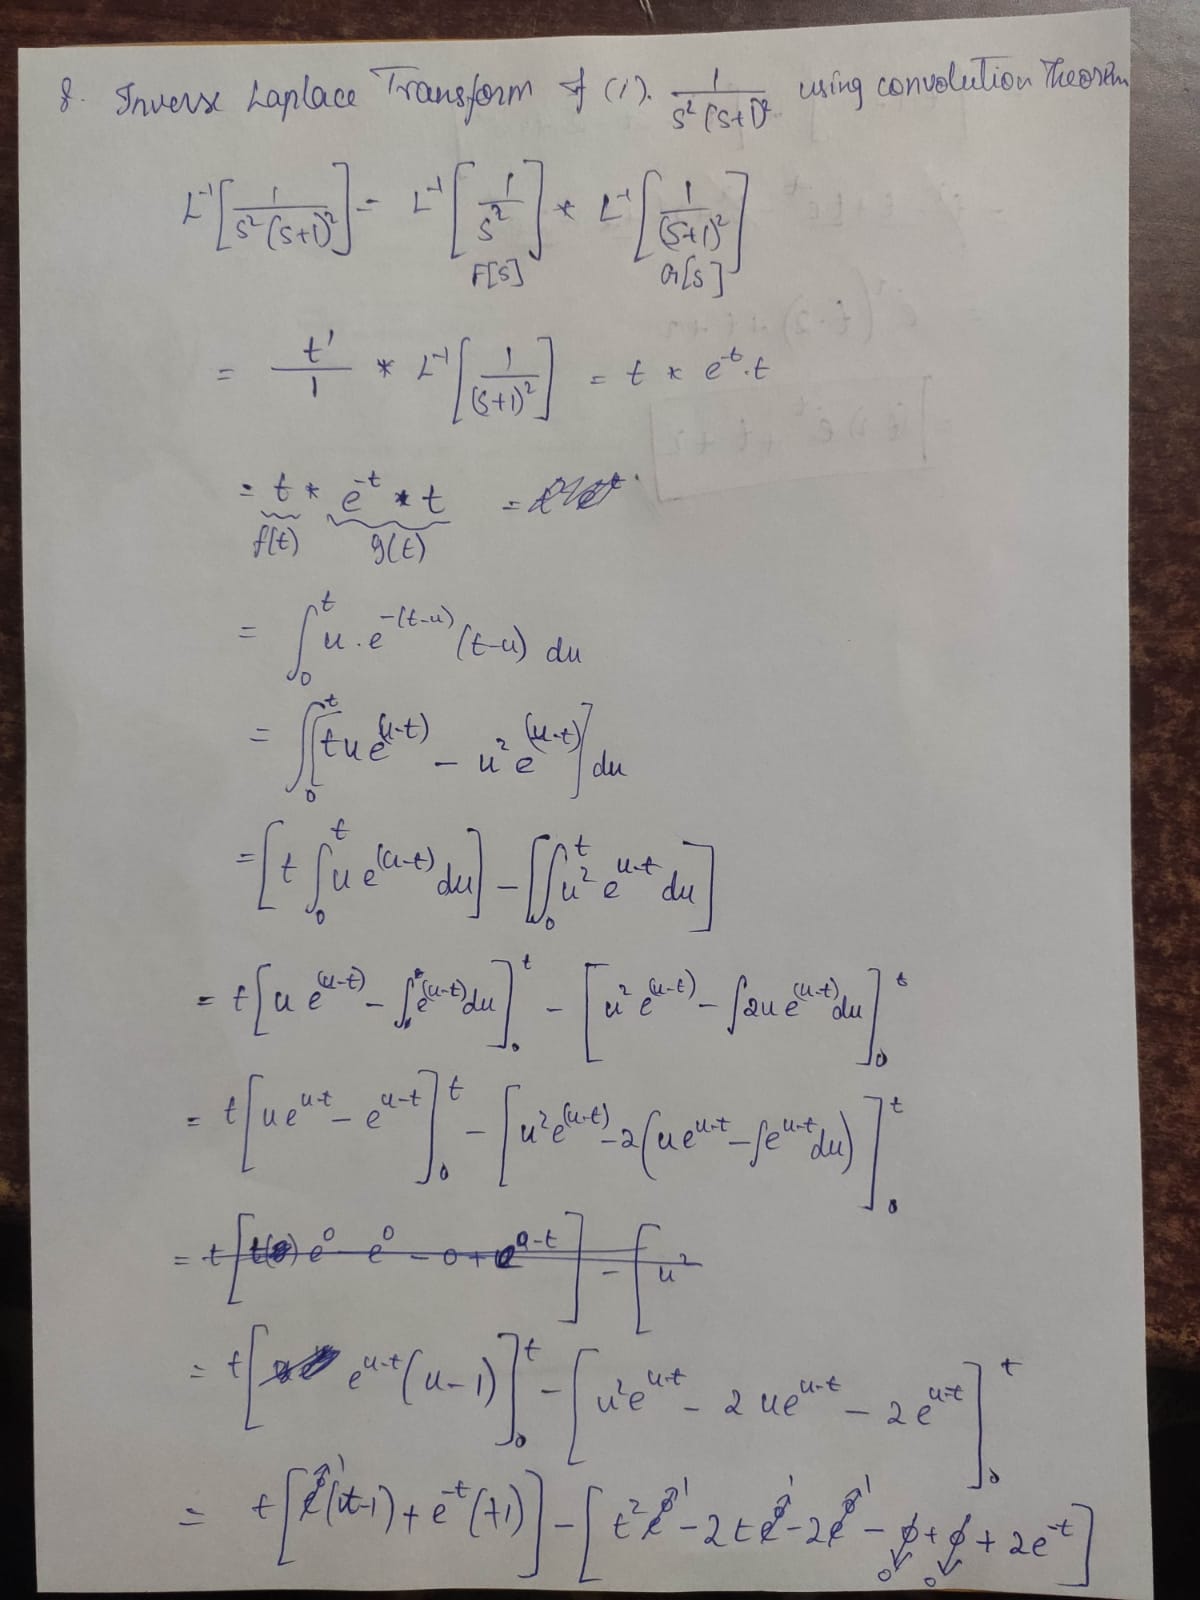 8. Inverse Laplace Transform of (1). 1/(s²(s+1)²) using convolution Theorem
L⁻¹[1/(s²(s+1)²)] = L⁻¹[1/s²] * L⁻¹[1/(s+1)²]
F[s] G[s]
= t¹/1 * L⁻¹[1/(s+1)²] = t * e⁻ᵗ·t
= t * e⁻ᵗ * t =
f(t) g(t)
= ∫₀ᵗ u·e^(-(t-u)) (t-u) du
= ∫₀ᵗ [tu e^(u-t) - u² e^(u-t)] du
= [t ∫₀ᵗ u e^(u-t) du] - [∫₀ᵗ u² e^(u-t) du]
= t[u e^(u-t) - ∫e^(u-t) du]₀ᵗ - [u² e^(u-t) - ∫2u e^(u-t) du]₀ᵗ
= t[u e^(u-t) - e^(u-t)]₀ᵗ - [u² e^(u-t) - 2(u e^(u-t) - ∫e^(u-t) du)]₀ᵗ
= t[ e⁰ e⁰ - 0 + e^(0-t)] - [u²
= t[e^(u-t)(u-1)]₀ᵗ - [u² e^(u-t) - 2u e^(u-t) - 2e^(u-t)]₀ᵗ
= t[e⁰¹(t-1) + e⁻ᵗ(+1)] - [t² e⁰¹ - 2t e⁰¹ - 2e⁰¹ - 0 + 0 + 2e⁻ᵗ]